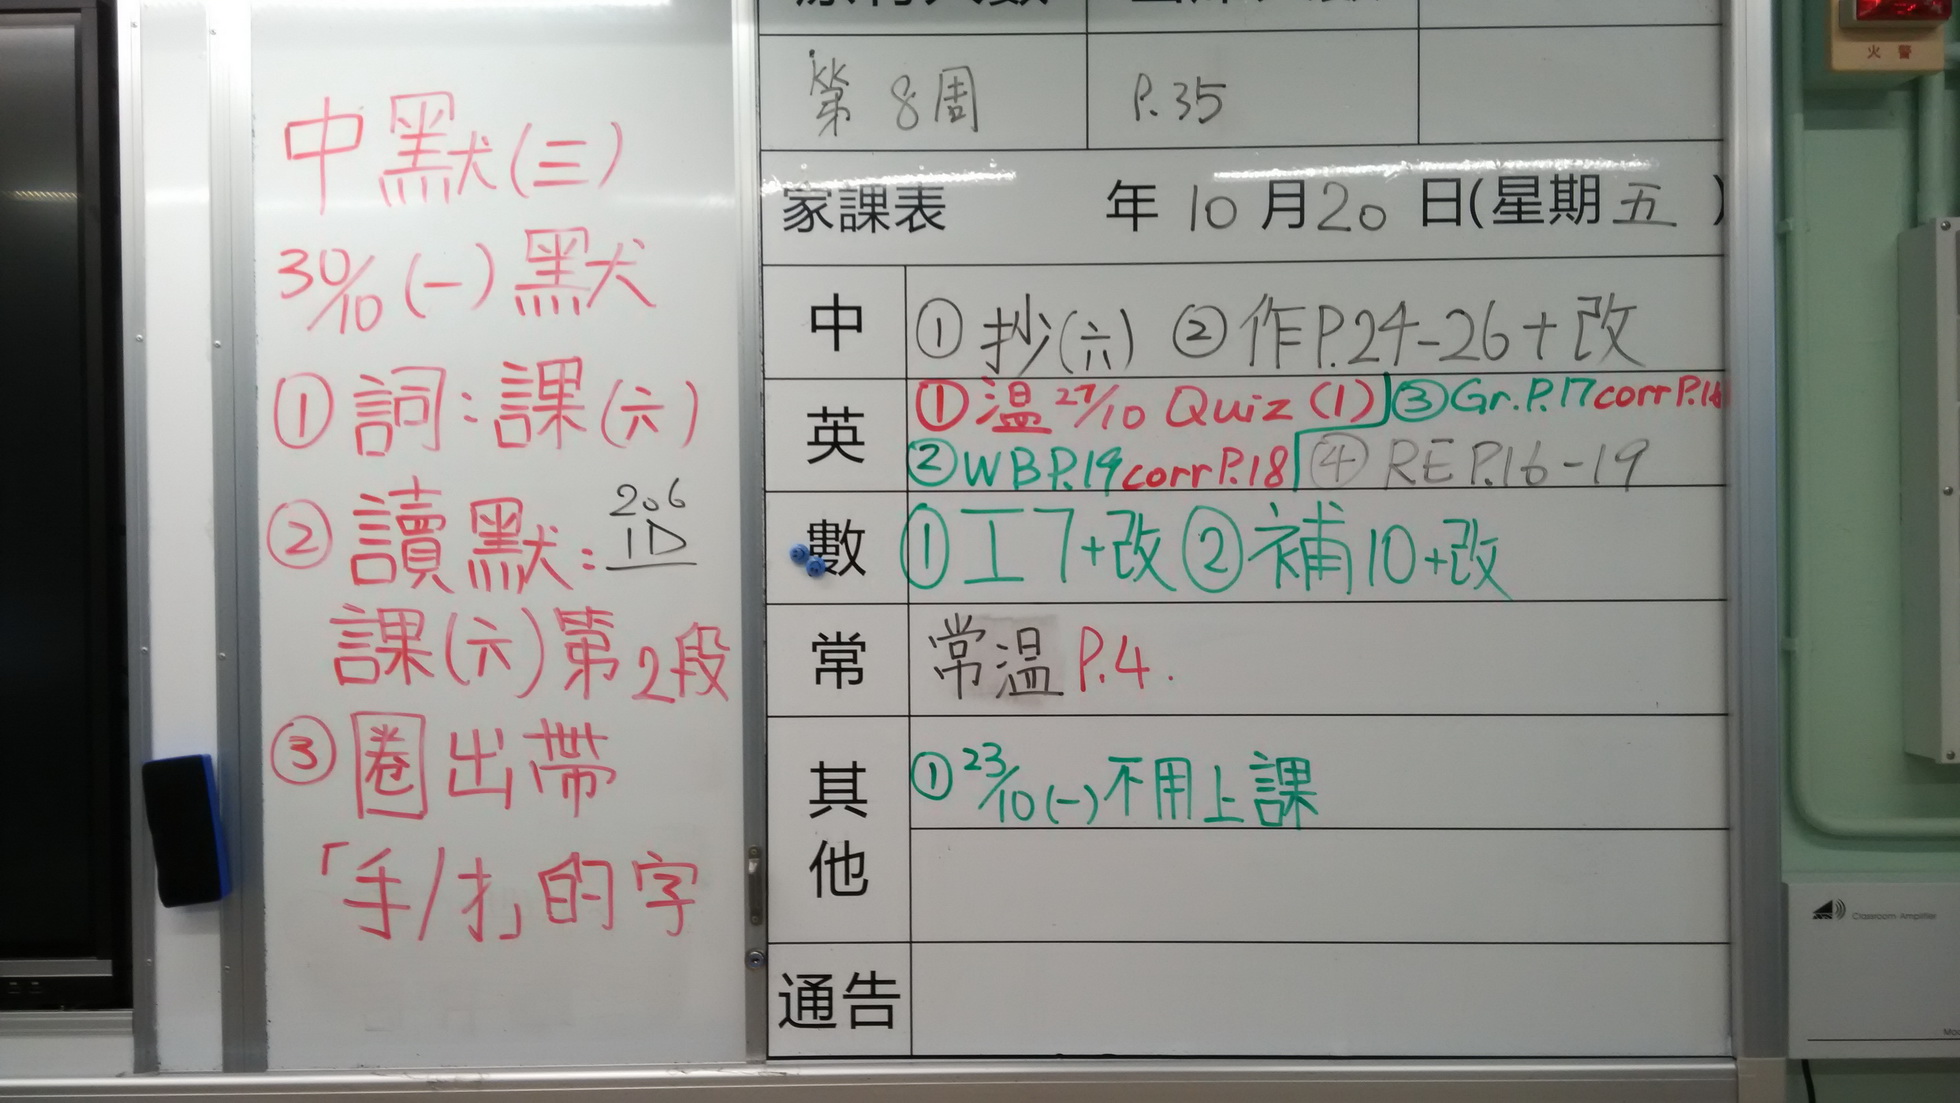 中默(三)
30/10 (一) 默
① 詞：課(六)
② 讀默：206
1D
課(六)第2段
③ 圈出帶
「手/扌」的字
第 8 周 P.35
家課表 年 10 月 20 日(星期 五 )
中 ① 抄(六) ② 作P.24-26+改
英 ① 溫 27/10 Quiz (1) ③ Gr.P.17 corrP.16
② WBP.19 corrP.18 ④ REP.16-19
數 ① 工7+改 ② 補10+改
常 常溫 P.4.
其他 ① 23/10 (一) 不用上課
通告
火警
Classroom Amplifier